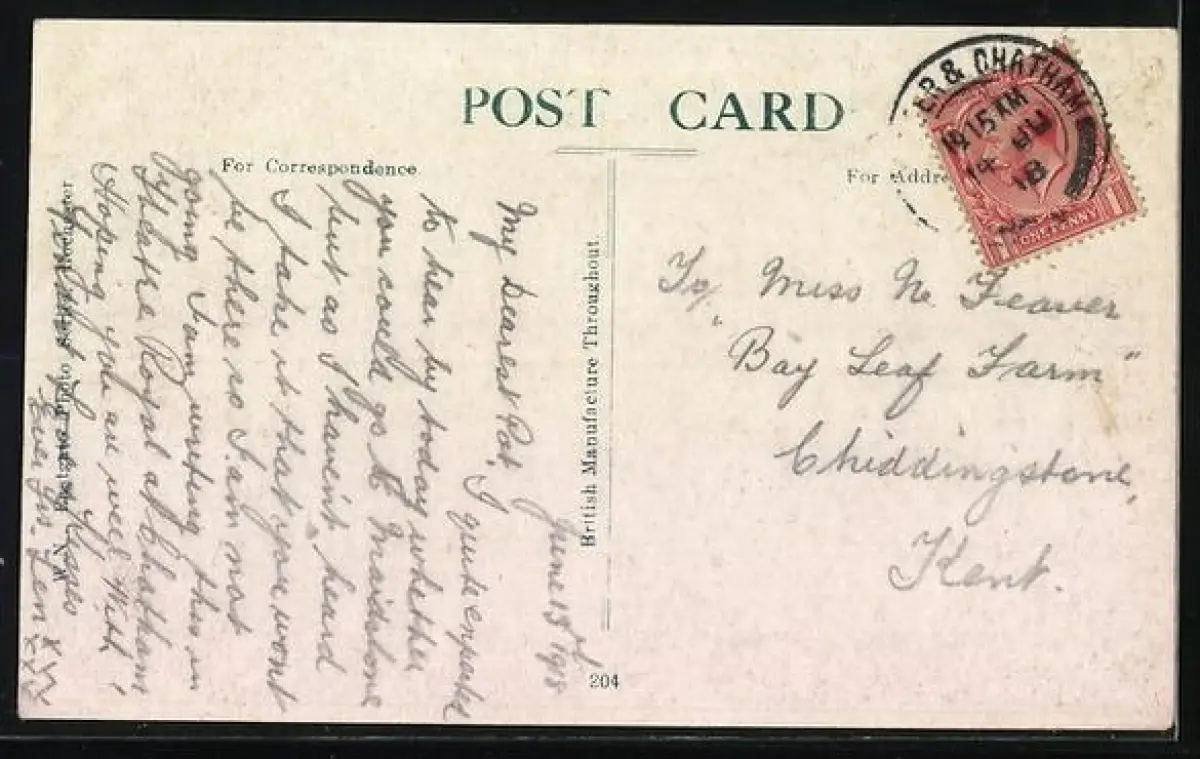 POST CARD
For Correspondence
For Addre
ER & CHATHAM
9 15 AM
14 JU
18
ONE PENNY
June 13th 1918
My Dearest Pat,
I quite expected
to hear by today whether
you could go to Maidstone
but as I haven't heard
I take it that you wont
be there so I am not
going. I am writing this in
the Theatre Royal at Chatham
Hoping you are well, With
Ever yrs. Len xxx
xxx
British Manufacture Throughout.
204
To/ Miss N. Feaver
"Bay Leaf Farm"
Chiddingstone,
Kent.